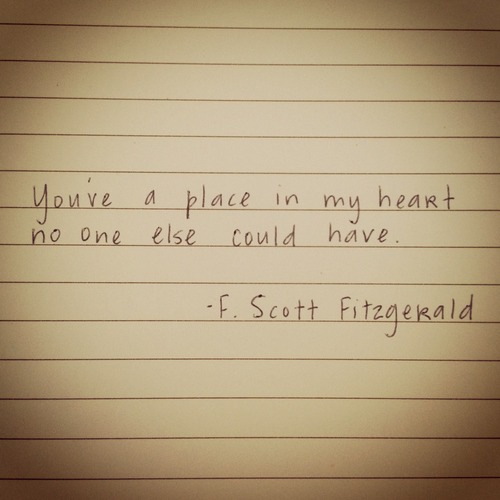 You've a place in my heart
no one else could have.
-F. Scott Fitzgerald